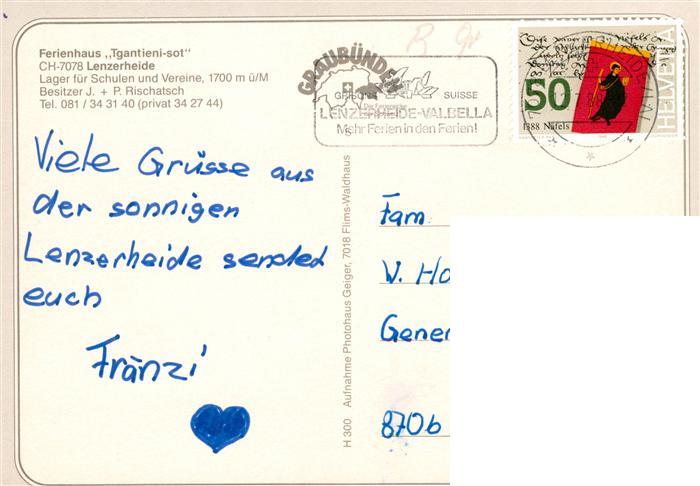 Ferienhaus „Tgantieni-sot"
CH-7078 Lenzerheide
Lager für Schulen und Vereine, 1700 m ü/M
Besitzer J. + P. Rischatsch
Tel. 081 / 34 31 40 (privat 34 27 44)
GRAUBÜNDEN
SUISSE
LENZERHEIDE-VALBELLA
Mehr Ferien in den Ferien!
50
1388 Näfels
HELVETIA
Viele Grüsse aus
der sonnigen
Lenzerheide sended
euch
Fränzi
H 300 Aufnahme Photohaus Geiger, 7018 Flims-Waldhaus
Fam.
W. Ho
Gener
8706